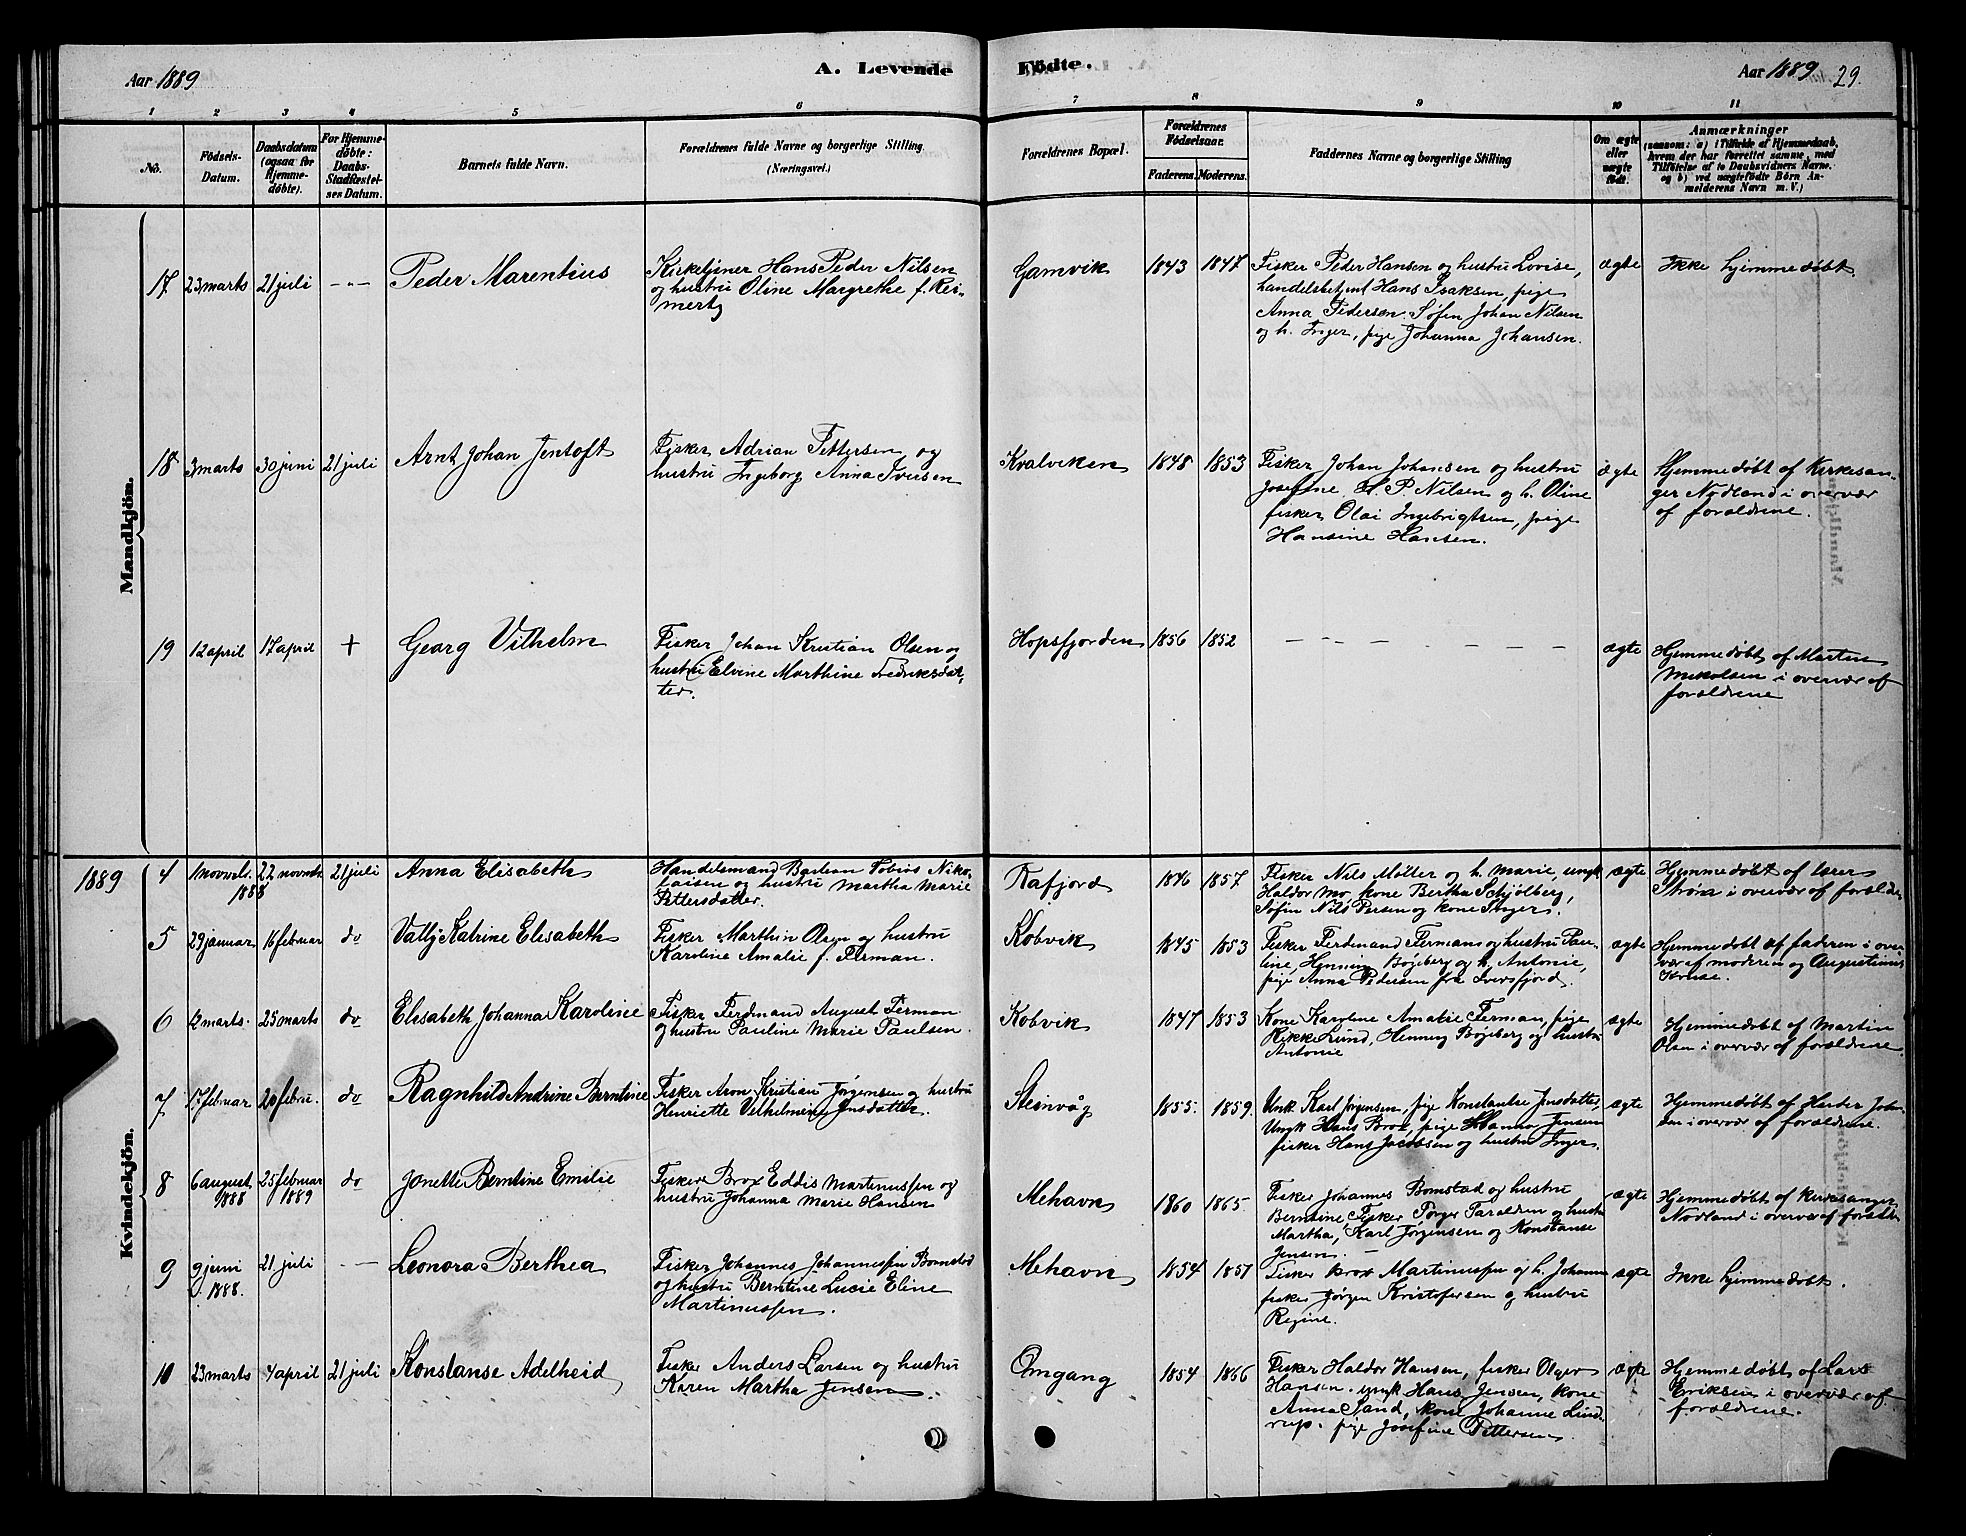 Aar 1889
A. Levende
Födte.
Aar 1889
29.
1 2 3 4 5 6 7 8 9 10 11
No.
Fødsels-
Datum.
Daabsdatum
(ogsaa for
Hjemme-
døbte).
For Hjemme-
døbte:
Daabs-
Stadfæstel-
ses Datum.
Barnets fulde Navn.
Forældrenes fulde Navne og borgerlige Stilling.
(Næringsvei.)
Forældrenes Bopæl.
Forældrenes
Fødselsaar.
Faderens. Moderens.
Faddernes Navne og borgerlige Stilling
Om ægte
eller
uægte
født.
Anmærkninger
(saasom: a) i Tilfælde af Hjemmedaab,
hvem der har forrettet samme, med
Tilføielse af to Daabsvidners Navne.
og b) ved uægtefødte Børn An-
melderens Navn m. V.)
Mandkjön.
17 23 marts 21 juli - " -
Peder Marentius
Kirketjener Hans Peder Nilsen
og hustru Oline Margrethe f. Rei-
mertz
Gamvik 1843 1847
Fisker Peder Hansen og hustru Lovise,
handelsbetjent Hans Isaksen, pige
Anna Pedersen. Søfin Johan Nilsen
og h. Inger, pige Johanna Johansen.
ægte
Ikke hjemmedøbt.
18 3 marts 30 juni 21 juli
Arnt Johan Jentoft
Fisker Adrian Pettersen og
hustru Ingeborg Anna Iversen
Kvalviken 1848 1853
Fisker Johan Johansen og hustru
Josefine. H. P. Nilsen og h. Oline
fisker Olai Ingebrigtsen, pige
Hansine Hansen.
ægte
Hjemmedøbt af Kirkesan-
ger Nodland i overvær
af forældrene.
19 12 april 17 april +
Georg Vilhelm
Fisker Johan Kristian Olsen og
hustru Elvine Marthine Fredriksdat-
ter.
Hopsfjorden 1856 1852
- " - - - - -
ægte
Hjemmedøbt af Marten
Mikolsen i overvær af
forældrene
1889
Kvindekjön.
4 1 novbr. 1888 22 novemb 21 juli
Anna Elisabeth
Handelsmand Bastian Tobias Niko-
laisen og hustru Martha Marie
Pettersdatter.
Rafjord 1846 1857
Fisker Nils Møller og h. Marie, ungk
Haldor Mo, kone Bertha Schjølberg,
Søfin Nils Persen og kone Inger.
ægte
Hjemmedøbt af lærer
Strøm i overvær af forældre
5 29 januar 16 februar do
Vally Katrine Elisabeth
Fisker Marthin Olsen og hustru
Karoline Amalie f. Ferman.
Kobvik 1845 1853
Fisker Ferdinand Fermans og hustru Pau-
line, Henning Bøgeberg og h. Antonie,
pige Anna Pedersen fra Iversfjord.
ægte
Hjemmedøbt af faderen i over
vær af moderen og Augustinus
Kruse.
6 12 marts 25 marts do
Elisabeth Johanna Karoline
Fisker Ferdinand August Ferman
og hustru Pauline Marie Paulsen.
Kobvik 1847 1853
Kone Karoline Amalie Ferman, pige
Rikke Lund, Henning Bøgeberg og hustru
Antonie
ægte
Hjemmedøbt af Martin
Olsen i overvær af forældrene.
7 17 februar 20 febru. do
Ragnhild Andrine Berntine
Fisker Aron Kristian Jørgensen og hustru
Henriette Vilhelmine Jensdatter.
Steinvåg 1855. 1859.
Unk. Karl Jørgensen, pige Konstantse Jensdatter,
Ungk Hans Brox, pige Hanna Jensen
fisker Hans Jacobsen og hustru Inger.
ægte
Hjemmedøbt af Peder Joh
sen i overvær af forældrene.
8 6 august 1888 25 februar 1889 do
Jonette Berntine Emilie
Fisker Brox Eddis Martinussen og
hustru Johanna Marie Hansen
Mehavn 1860 1865.
Fisker Johannes Bomstad og hustru
Berntine, Fisker Pørger Paralsen og hustru
Martha, Karl Jørgensen og Konstanse
Jensen. -
ægte
Hjemmedøbt af Kirkesanger
Nodland i overvær af foræld
9 9 juni 1888. 21 juli - -
Leonora Berthea
Fisker Johannes Johannessen Bomstad
og hustru Berntine Lucie Eline
Martinussen.
Mehavn 1854 1857
Fisker Brox Martinussen og h. Johanna
fisker Jørgen Kristofersen og hustru
Regine.
ægte
Ikke hjemmedøbt.
10 23 marts 4 april 21 juli
Konstanse Adelheid
Fisker Anders Larsen og hustru
Karen Martha Jensen.
Omgang 1854 1866
Fisker Haldor Hansen, fisker Olger
Hansen. ungk Hans Jensen, kone
Anna Sand, kone Johanne Lind-
rup. pige Josefine Pettersen.
ægte
Hjemmedøbt af Lars
Eriksen i overvær af
forældrene.